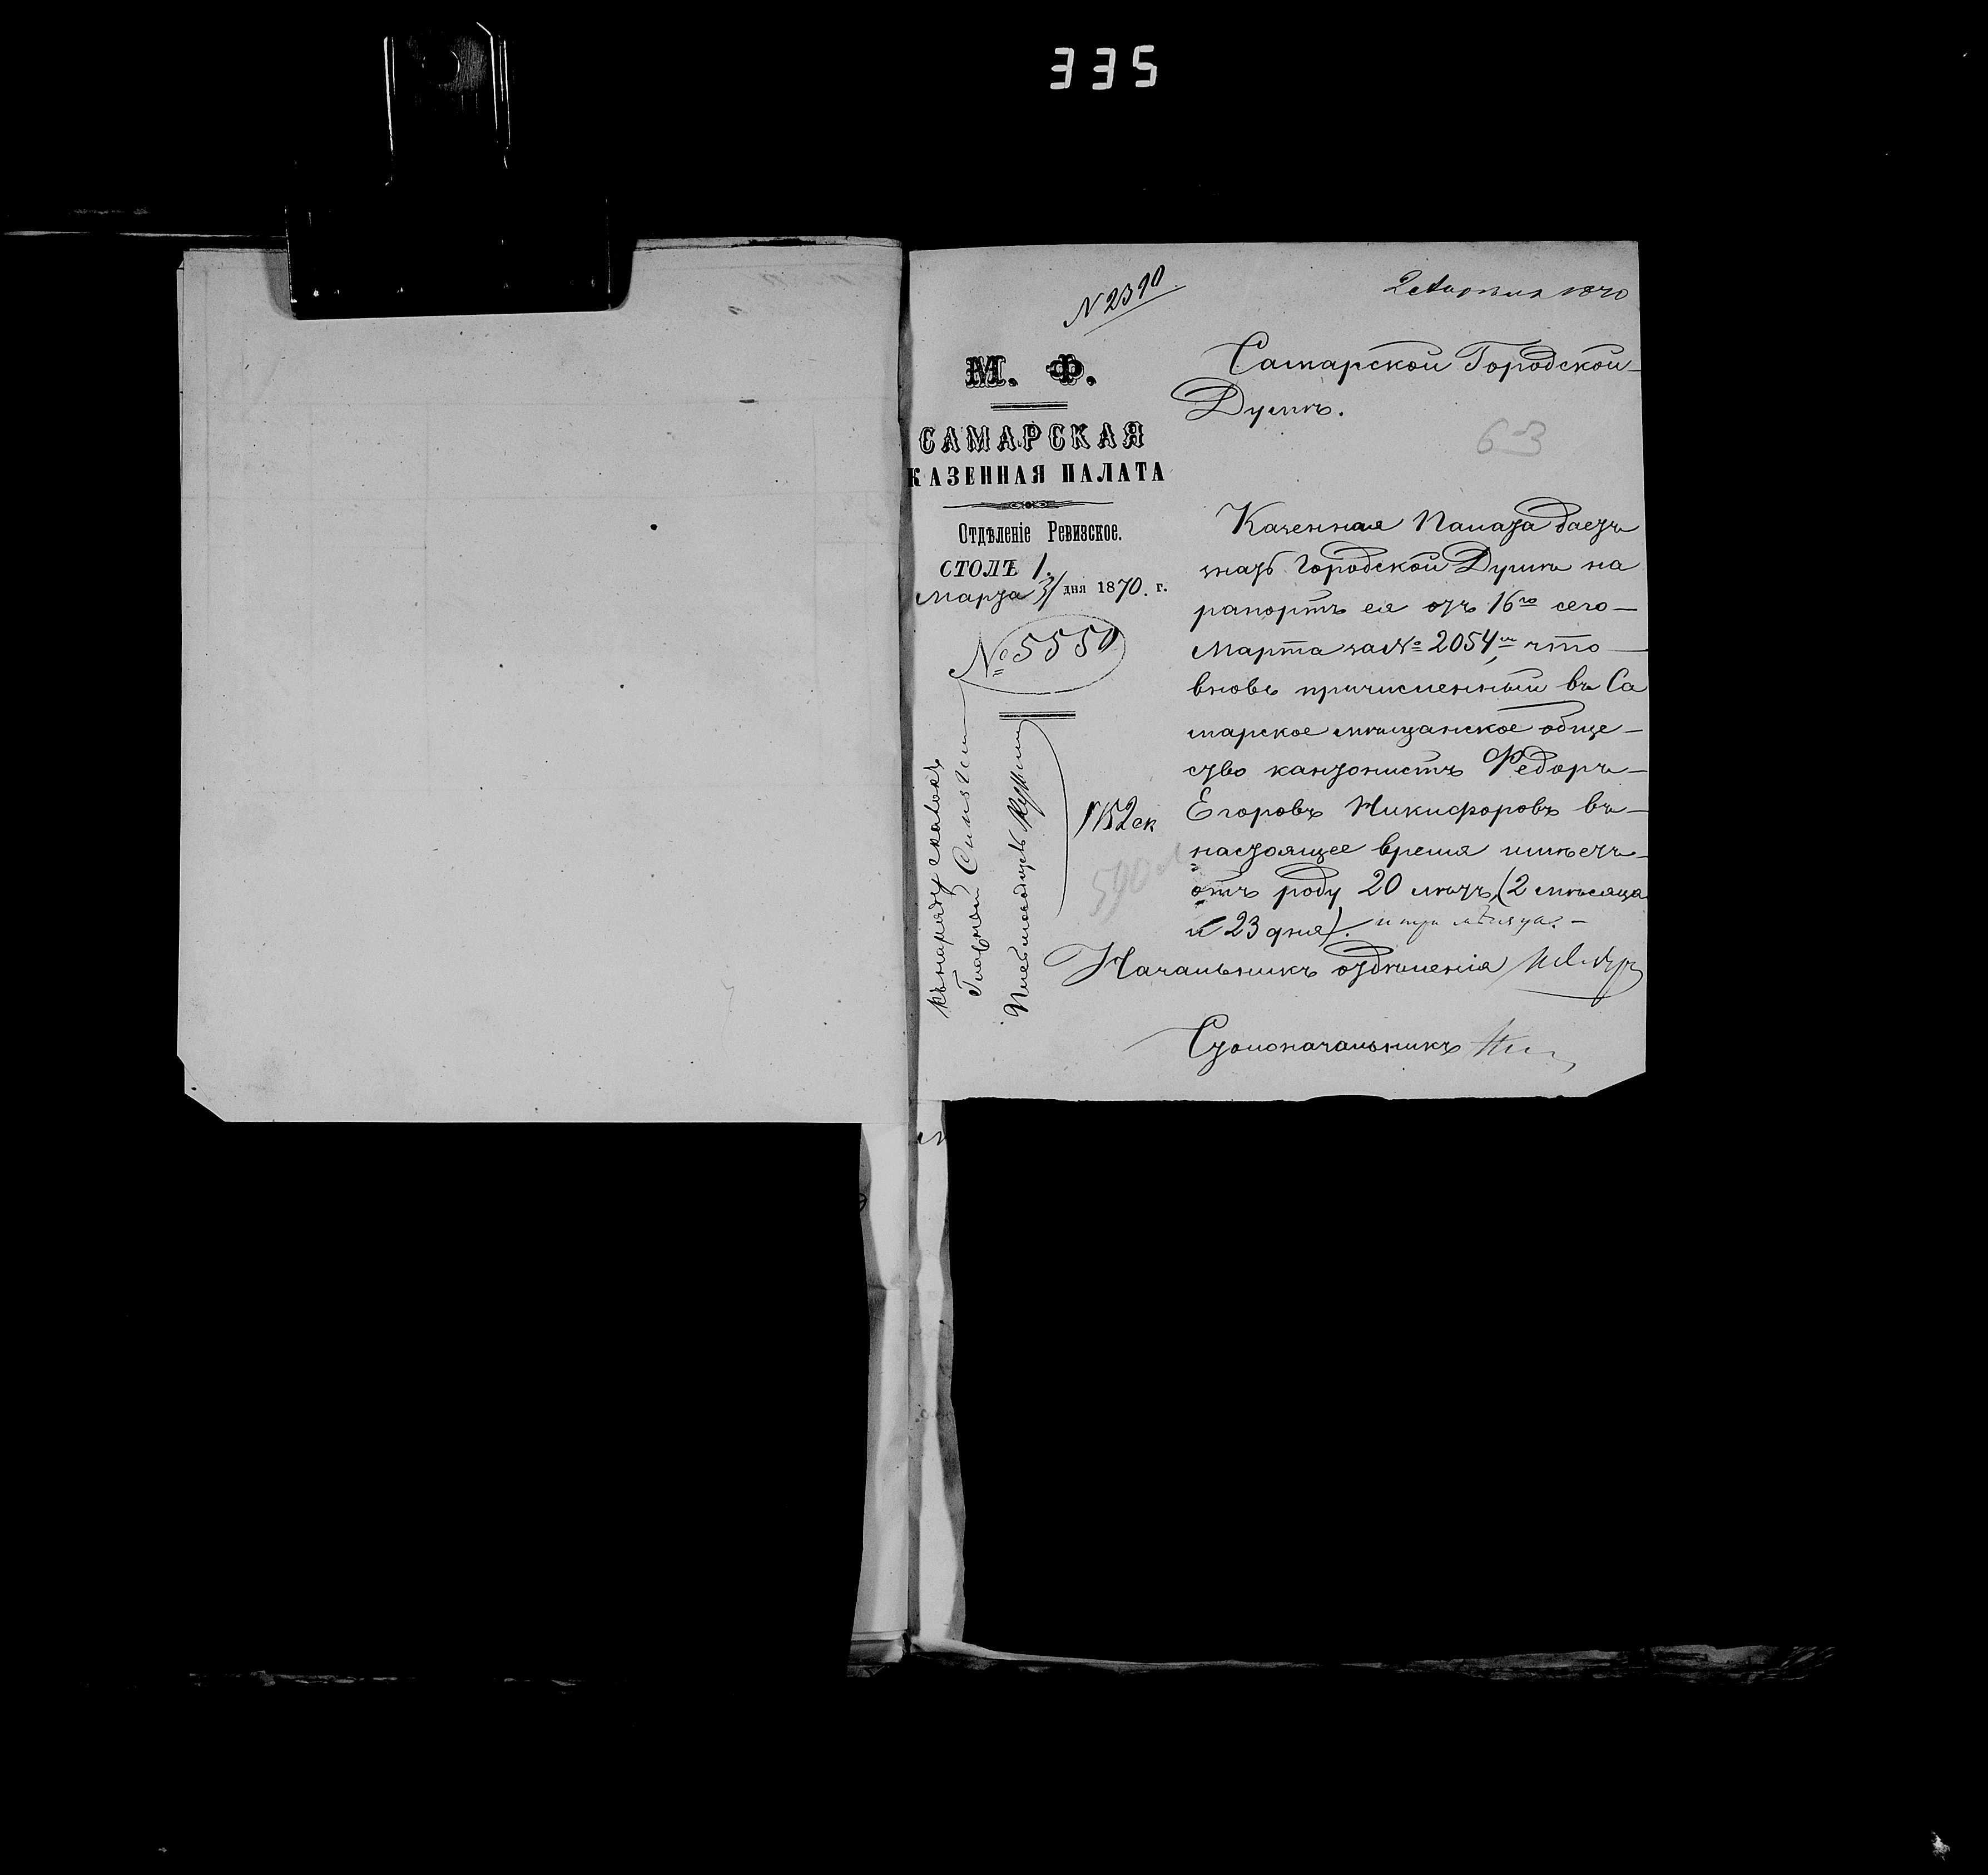 335
N 2390
2 Апрѣля 1870
М. Ф.
САМАРСКАЯ
КАЗЕННАЯ ПАЛАТА
Отдѣленіе Ревизское.
СТОЛЪ 1.
Марта 31 дня 1870. г.
№ 5550
Самарской Городской
Думѣ.
63
Казенная Палата даетъ
знать Городской Думѣ на
рапортъ ея отъ 16го сего
Марта за № 2054, что
вновь причисленный въ Са
марское мѣщанское обще-
ство кантонистъ Федоръ
Егоровъ Никифоровъ въ
настоящее время имѣетъ
отъ роду 20 лѣтъ, (2 мѣсяца
и 23 дня). и три мѣсяца.
Начальникъ отдѣленія
Столоначальникъ
590